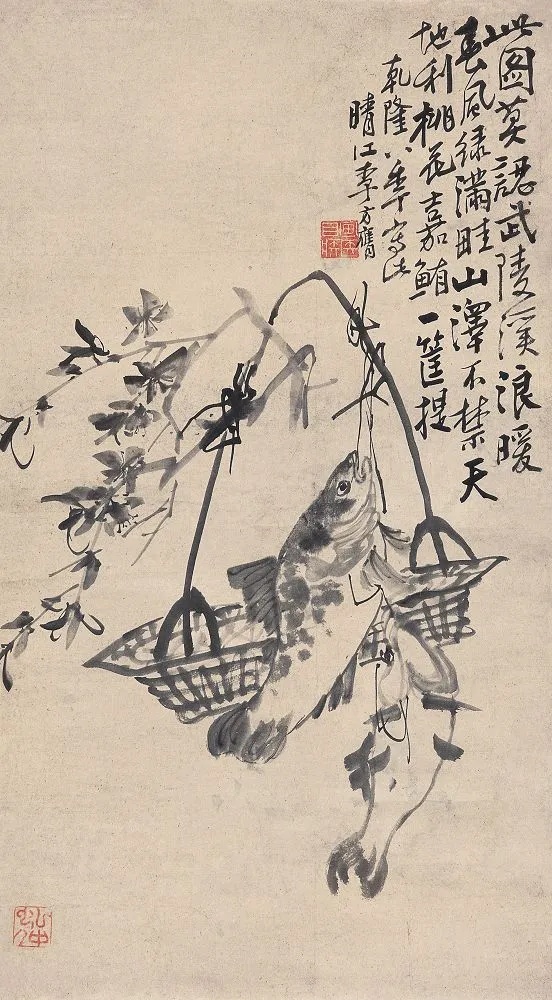 此图莫認武陵溪浪暖
春風绿滿畦山澤不禁天
地利桃花嘉鮪一筐提
乾隆八年寫此
晴江李方膺